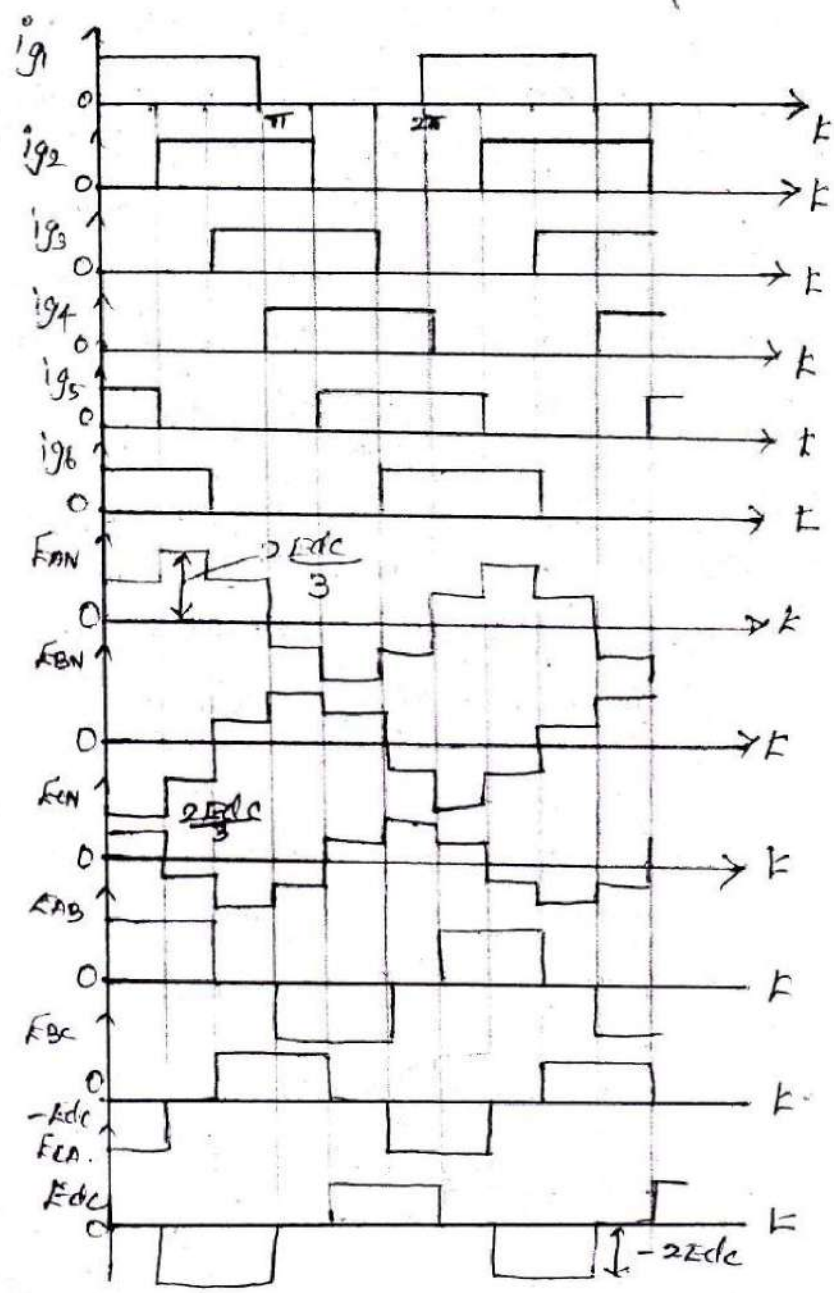 ig1
0
π
2π
t
ig2
0
t
ig3
0
t
ig4
0
t
ig5
0
t
ig6
0
t
EAN
2Edc
3
0
t
EBN
0
t
ECN
2Edc
3
0
t
EAB
0
t
EBC
0
t
-Edc
ECA.
Edc
0
t
-2Edc